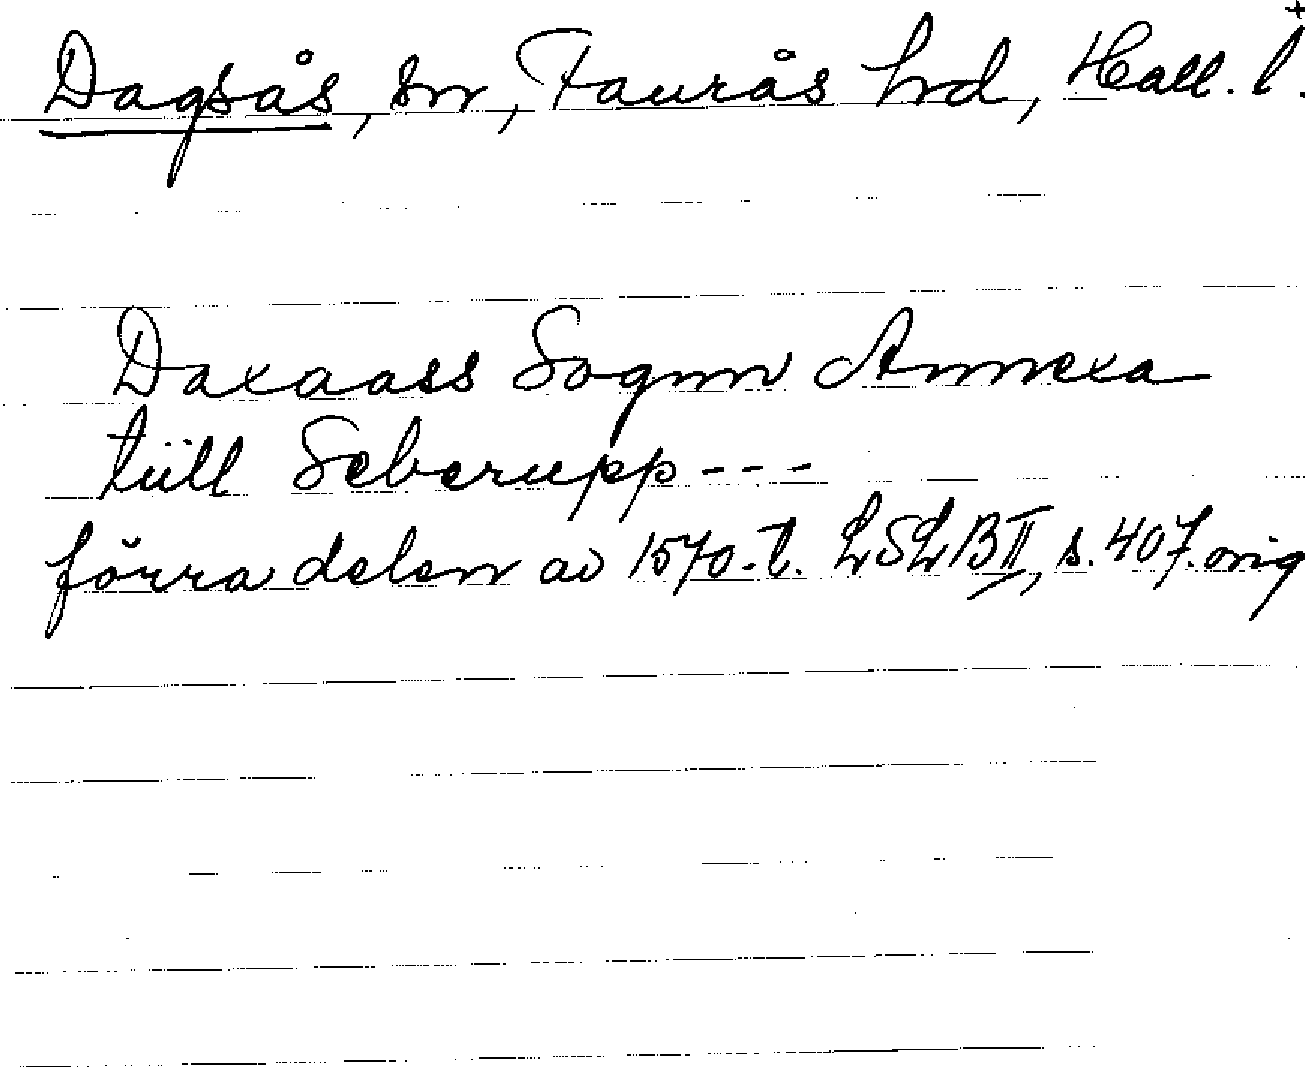 Dagsås, sn, Faurås hd, Hall. l.
Daxaass Sognn Annexa
tüll Seberupp ---
förra delen av 1570-t. LSLB II, s. 407. orig